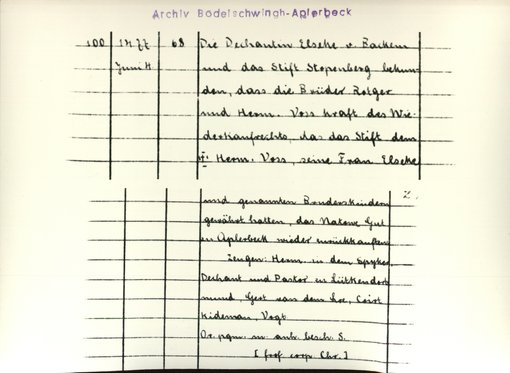 Archiv Bodelschwingh-Aplerbeck
100 1477 68 Die Dechantin Elseke v. Backem
Juni 4 und das Stift Stopenberg bekun-
den, dass die Brüder Rotger
und Herm. Voss kraft des Wie-
derkaufrechts, das das Stift dem
† Herm. Voss, seine Frau Elseke
2.
und genannten Bruderskindern
gewährt hatten, das Gut
in Aplerbeck wieder zurückkauften
Zeugen: Herm. in dem Spyker,
Dechant und Pastor in Lütkendort
mund, Gert van dem Loe, Coirt
Kideman, Vogt
Or. pgm. m. anh. besch. S.